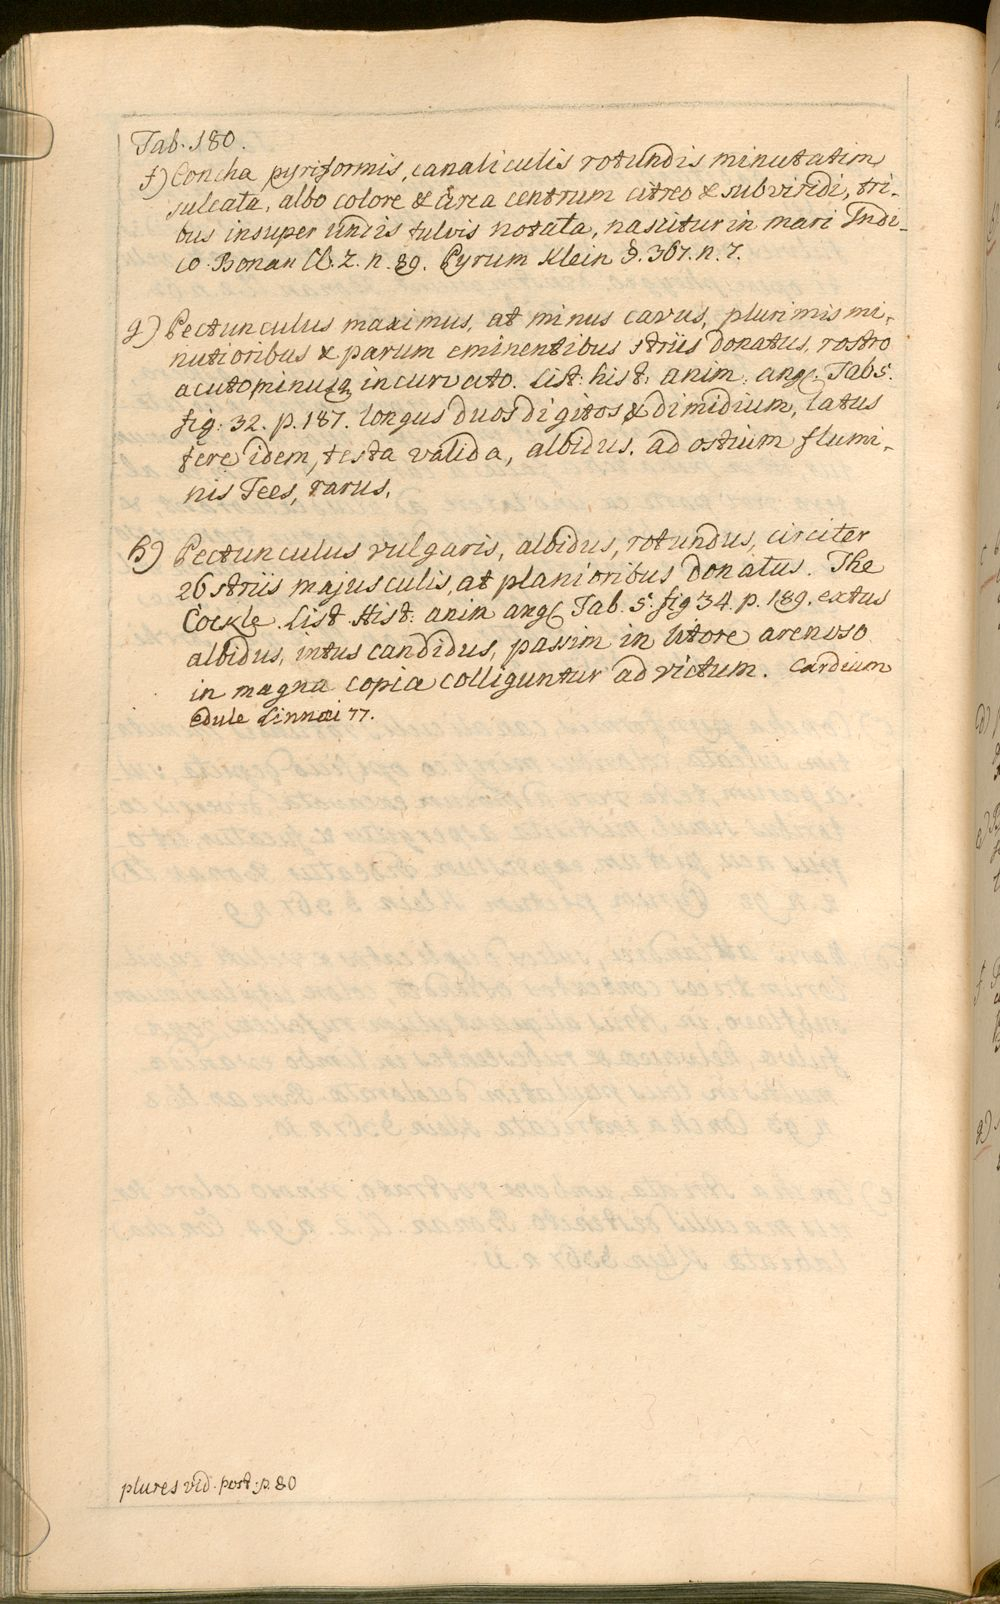 Tab. 180.
f) Concha pyriformis, canaliculis rotundis minutatim
sulcata, albo colore & circa centrum citreo & subviridi, tri-
bus insuper undis fulvis notata, nascitur in mari Indi-
co. Bonan Cl. 2. n. 89. Pyrum Klein §. 367. n. 7.
g) Pectunculus maximus, at minus cavus, plurimis mi-
nutioribus & parum eminentibus striis donatus, rostro
acuto minusq incurvato. List: hist: anim: angl. Tab 5.
fig: 32. p. 187. longus duos digitos & dimidium, latus
fere idem, testa valida, albidus. ad ostium flumi-
nis Tees, rarus.
h) Pectunculus vulgaris, albidus, rotundus, circiter
26 striis majusculis, at planioribus donatus. The
Cockle. List. Hist: anim angl Tab. 5. fig 34. p. 189. extus
albidus, intus candidus, passim in litore arenoso
in magna copia colliguntur ad victum. Cardium
edule Linnæi 77.
plures vid. post. p. 80